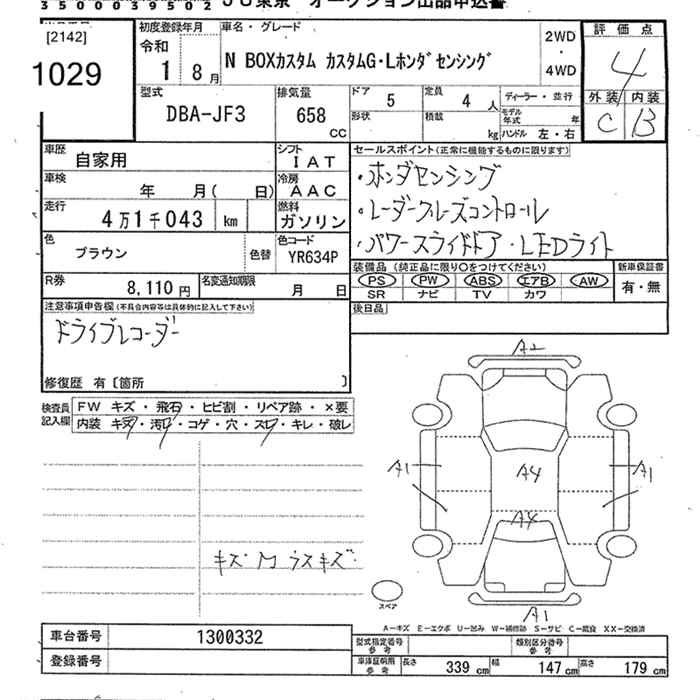 35000395020
JU東京 オークション出品申込書
[2142]
1029
初度登録年月
令和
1 8月
車名・グレード
N BOXカスタム カスタムG・Lホンダセンシング
2WD
・
4WD
評価点
4
外装 内装
C B
型式
DBA-JF3
排気量
658
CC
ドア 5
定員 4 人
形状
積載 kg
ディーラー・並行
モデル年式 年
ハンドル 左・右
車歴
自家用
シフト
IAT
車検
年 月( 日)
冷房
AAC
走行
4万1千043 km
燃料
ガソリン
色
ブラウン
色替
色コード
YR634P
R券
8,110円
名変通知期限
月 日
セールスポイント(正常に機能するものに限ります)
・ホンダセンシング
・レーダークルーズコントロール
・パワースライドドア・LEDライト
装備品(純正品に限り○をつけてください)
新車保証書
PS PW ABS エアB AW
SR ナビ TV カワ
有・無
後日品
注意事項申告欄(不具合内容等は具体的に記入して下さい)
ドライブレコーダー
修復歴 有〔箇所 〕
検査員記入欄
FW キズ・飛石・ヒビ割・リペア跡・×要
内装 キズ・汚レ・コゲ・穴・スレ・キレ・破レ
キズ M ラスキズ
A2
A1
A4
A1
A4
A1
スペア
A－キズ E－エクボ U－凹み W－補修跡 S－サビ C－腐食 XX－交換済
車台番号 1300332
登録番号
型式指定番号参考
類別区分番号参考
車庫証明用参考
長さ 339cm
幅 147cm
高さ 179cm